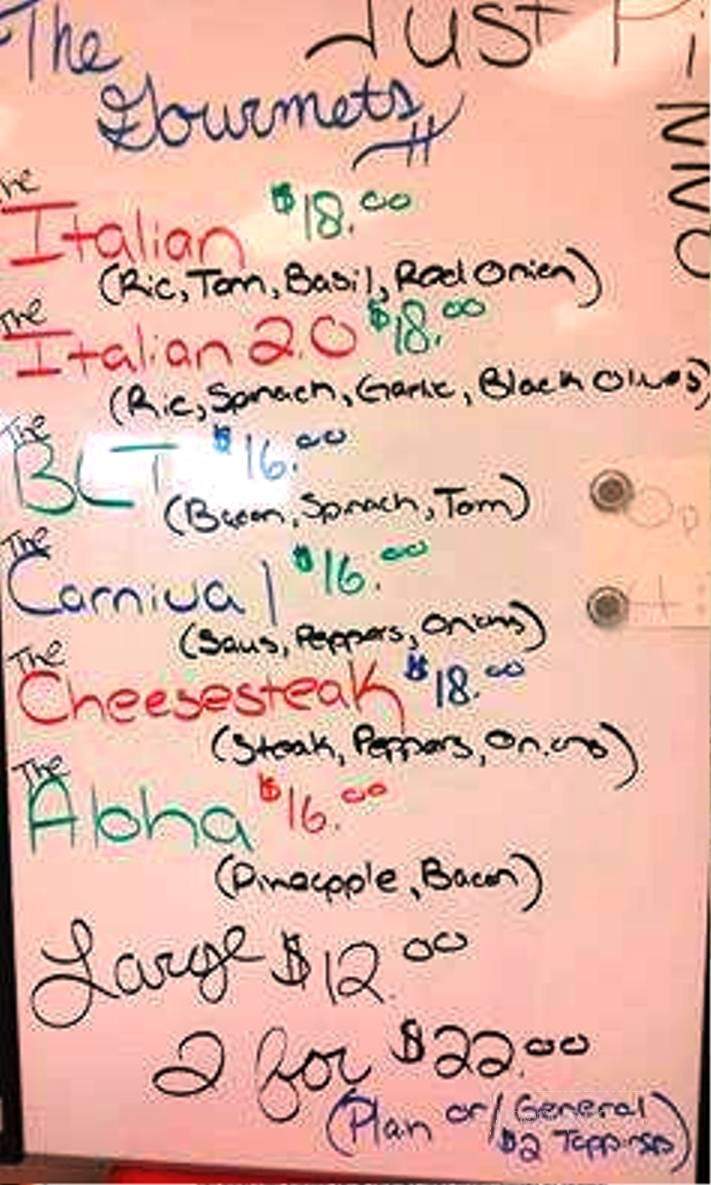 The Just Pi
Gourmets
NNO
The
Italian $18.00
(Ric, Tom, Basil, Red Onion)
The
Italian 2.0 $18.00
(Ric, Spinach, Garlic, Black Olives)
The
BLT $16.00
(Bacon, Spinach, Tom)
The
Carnival $16.00
(Saus, Peppers, Onions)
The
Cheesesteak $18.00
(Steak, Peppers, Onions)
The
Aloha $16.00
(Pineapple, Bacon)
Large $12.00
2 for $22.00
(Plan or/General
$2 Toppings)